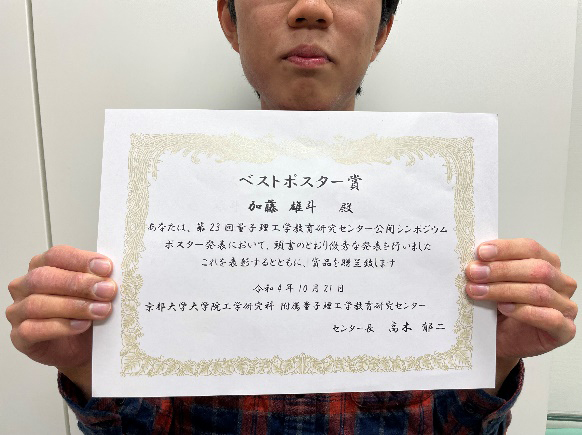 ベストポスター賞
加藤 雄斗 殿
あなたは、第23回量子理工学教育研究センター公開シンポジウム
ポスター発表において、頭書のとおり優秀な発表を行いました
これを表彰するとともに、賞品を贈呈致します
令和4年10月21日
京都大学大学院工学研究科 附属量子理工学教育研究センター
センター長 高木 郁二